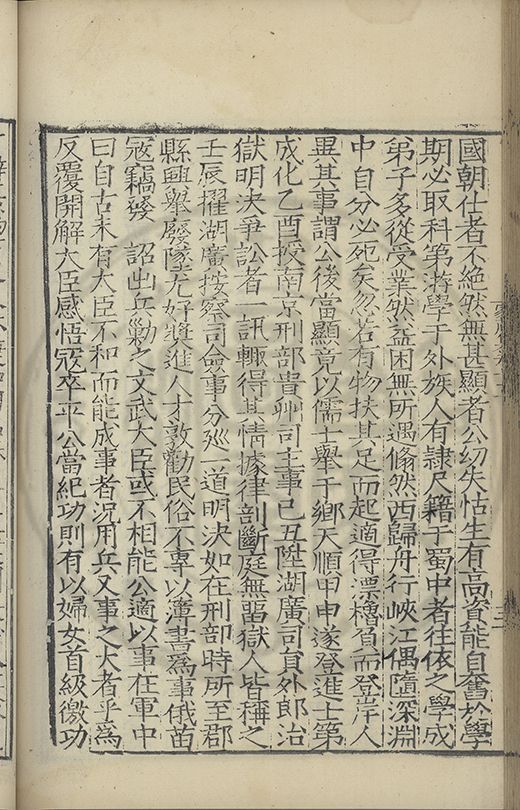 國朝仕者不絶然無甚顯者公幼失怙生有高資能自奮於學
期必取科第游學于外族人有隷尺籍于蜀中者往依之學成
弟子多從受業然益困無所遇翛然西歸舟行峽江偶墮深淵
中自分必死矣忽若有物扶其足而起適得漂櫓負而登岸人
異其事謂公後當顯竟以儒士舉于鄉天順甲申遂登進士第
成化乙酉授南京刑部貴州司主事己丑陞湖廣司員外郎治
獄明決爭訟者一訊輙得其情據律剖斷庭無畱獄人皆稱之
壬辰擢湖廣按察司僉事分廵一道明決如在刑部時所至郡
縣興舉廢墜尤好奬進人才敦勸民俗不專以薄書爲事俄苗
寇竊發 詔出兵勦之文武大臣或不相能公適以事在軍中
曰自古未有大臣不和而能成事者況用兵又事之大者乎爲
反覆開解大臣感悟寇卒平公當紀功則有以婦女首級徼功